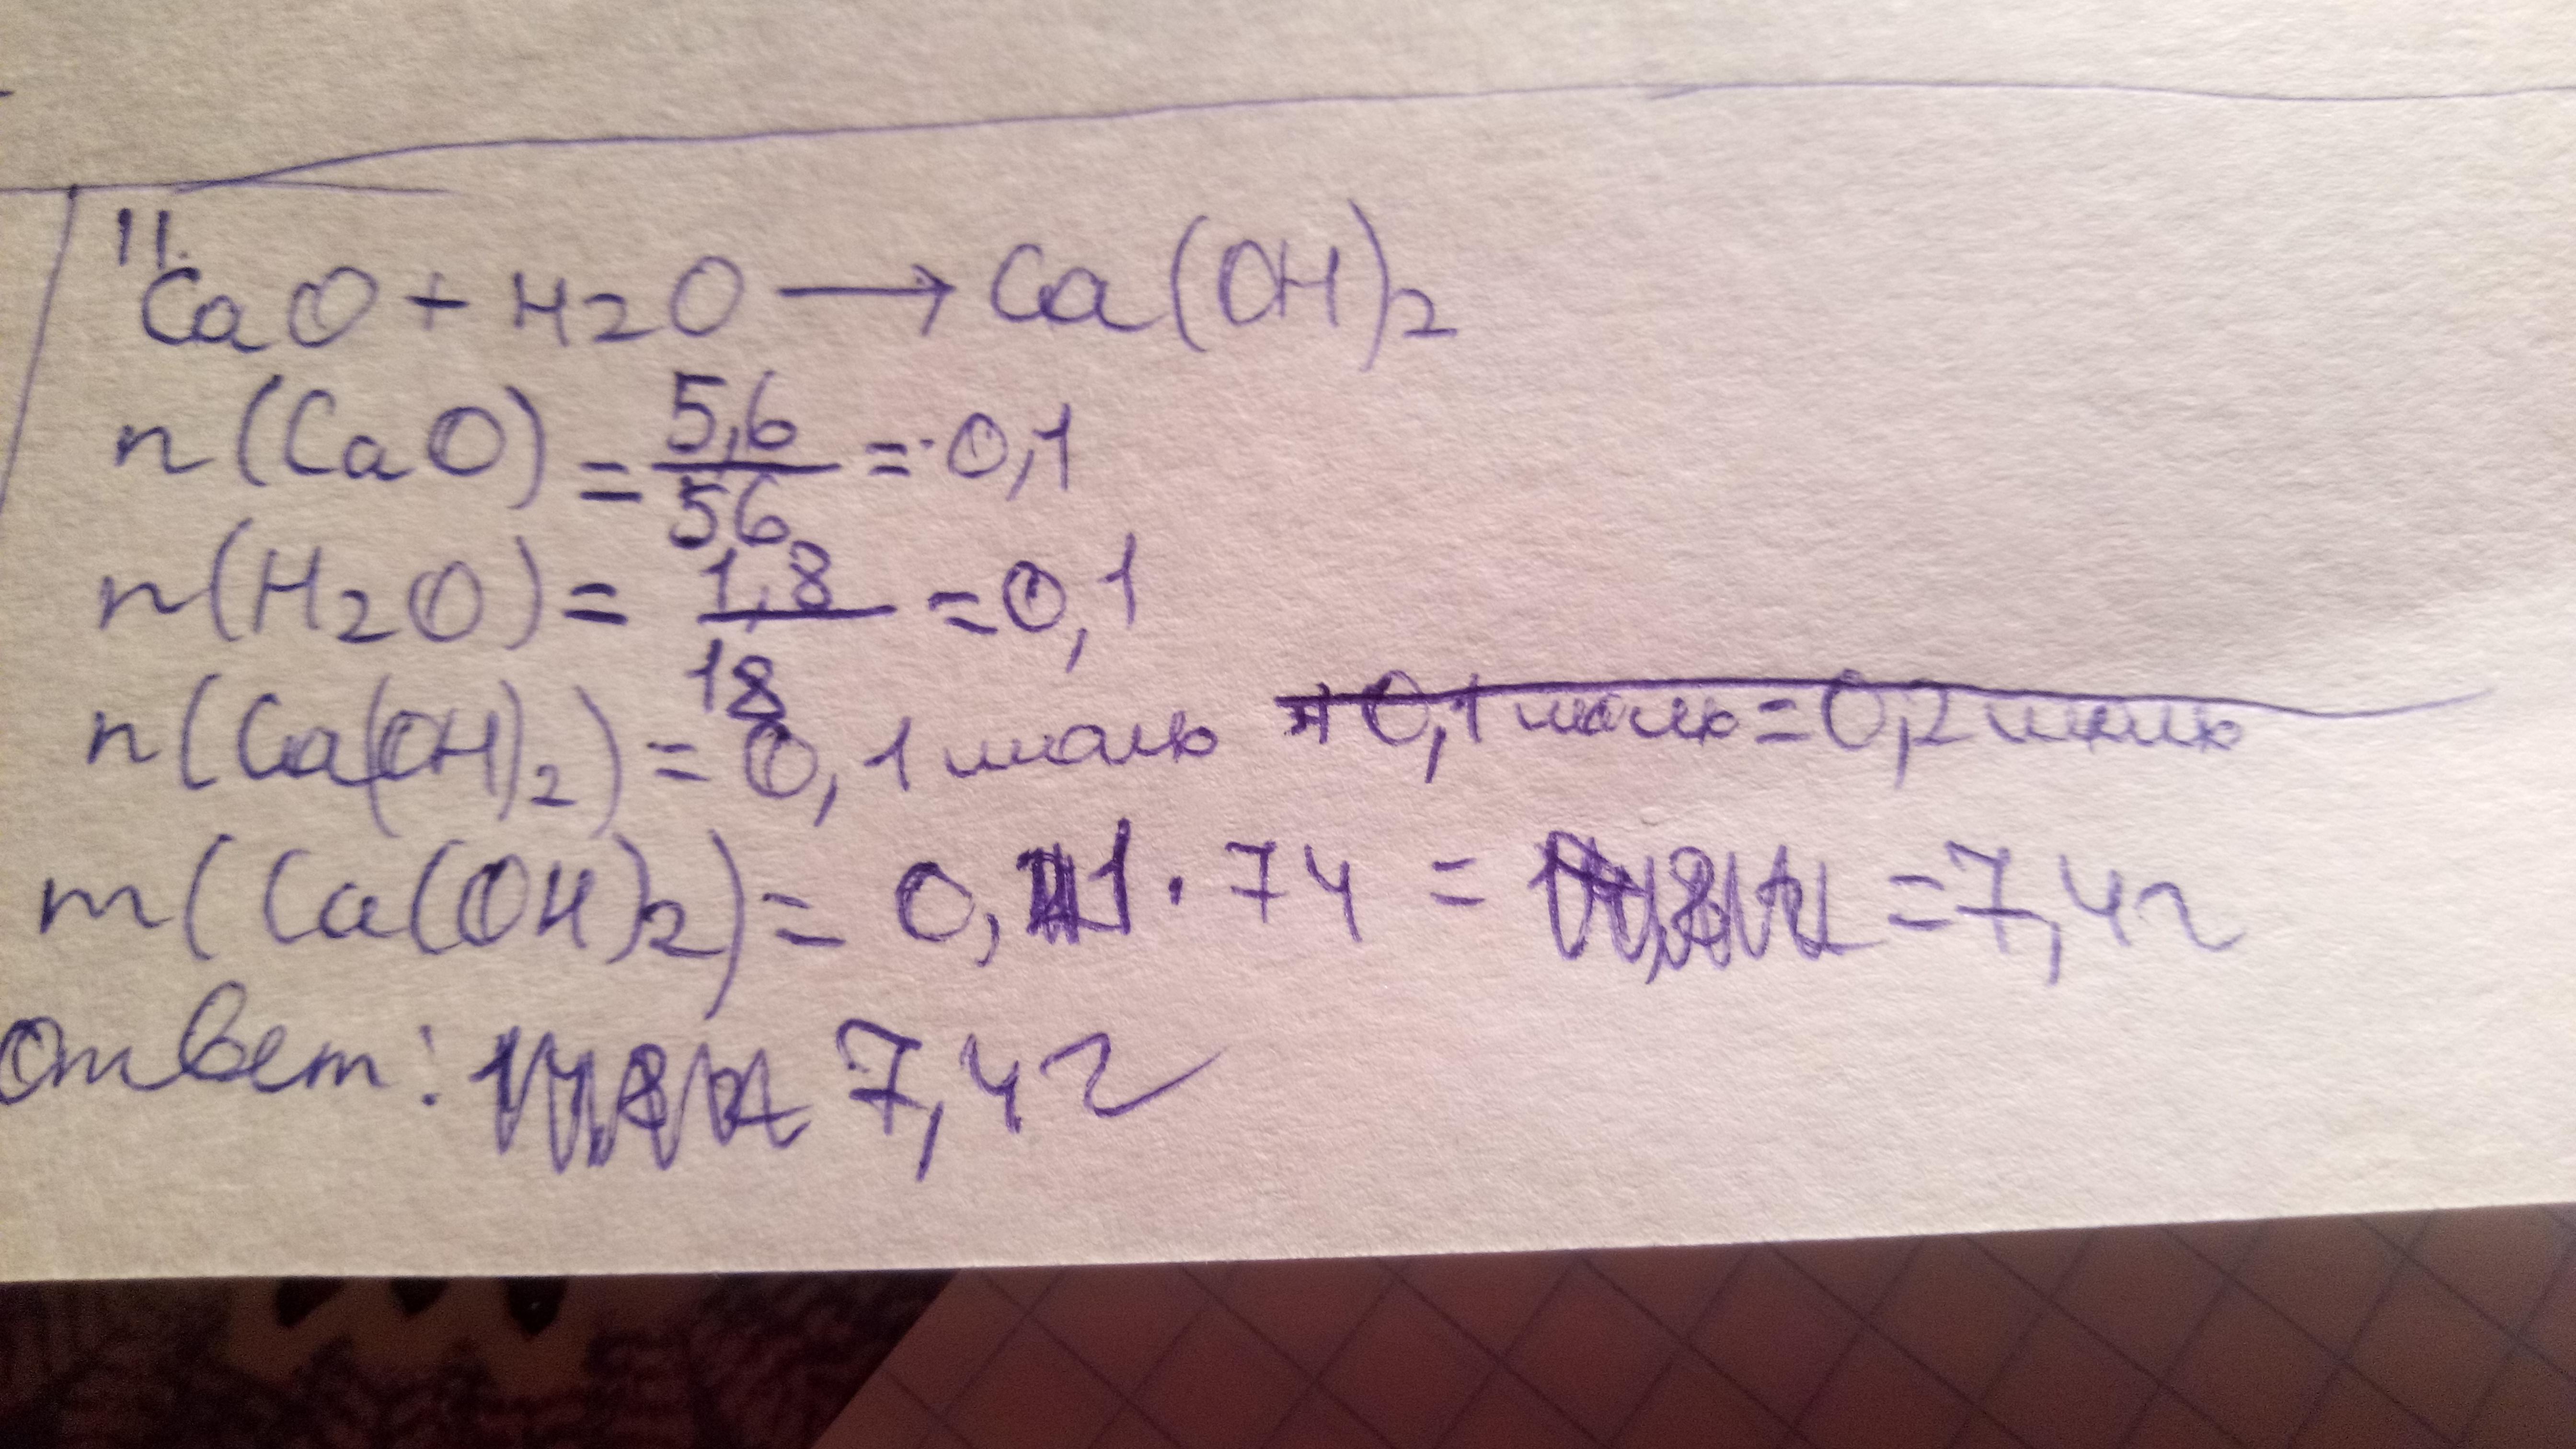 11.
CaO + H2O → Ca(OH)2
n(CaO) = 5,6/56 = 0,1
n(H2O) = 1,8/18 = 0,1
n(Ca(OH)2) = 0,1 моль + 0,1 моль = 0,2 моль
m(Ca(OH)2) = 0,1 · 74 = = 7,4г
Ответ: 7,4г